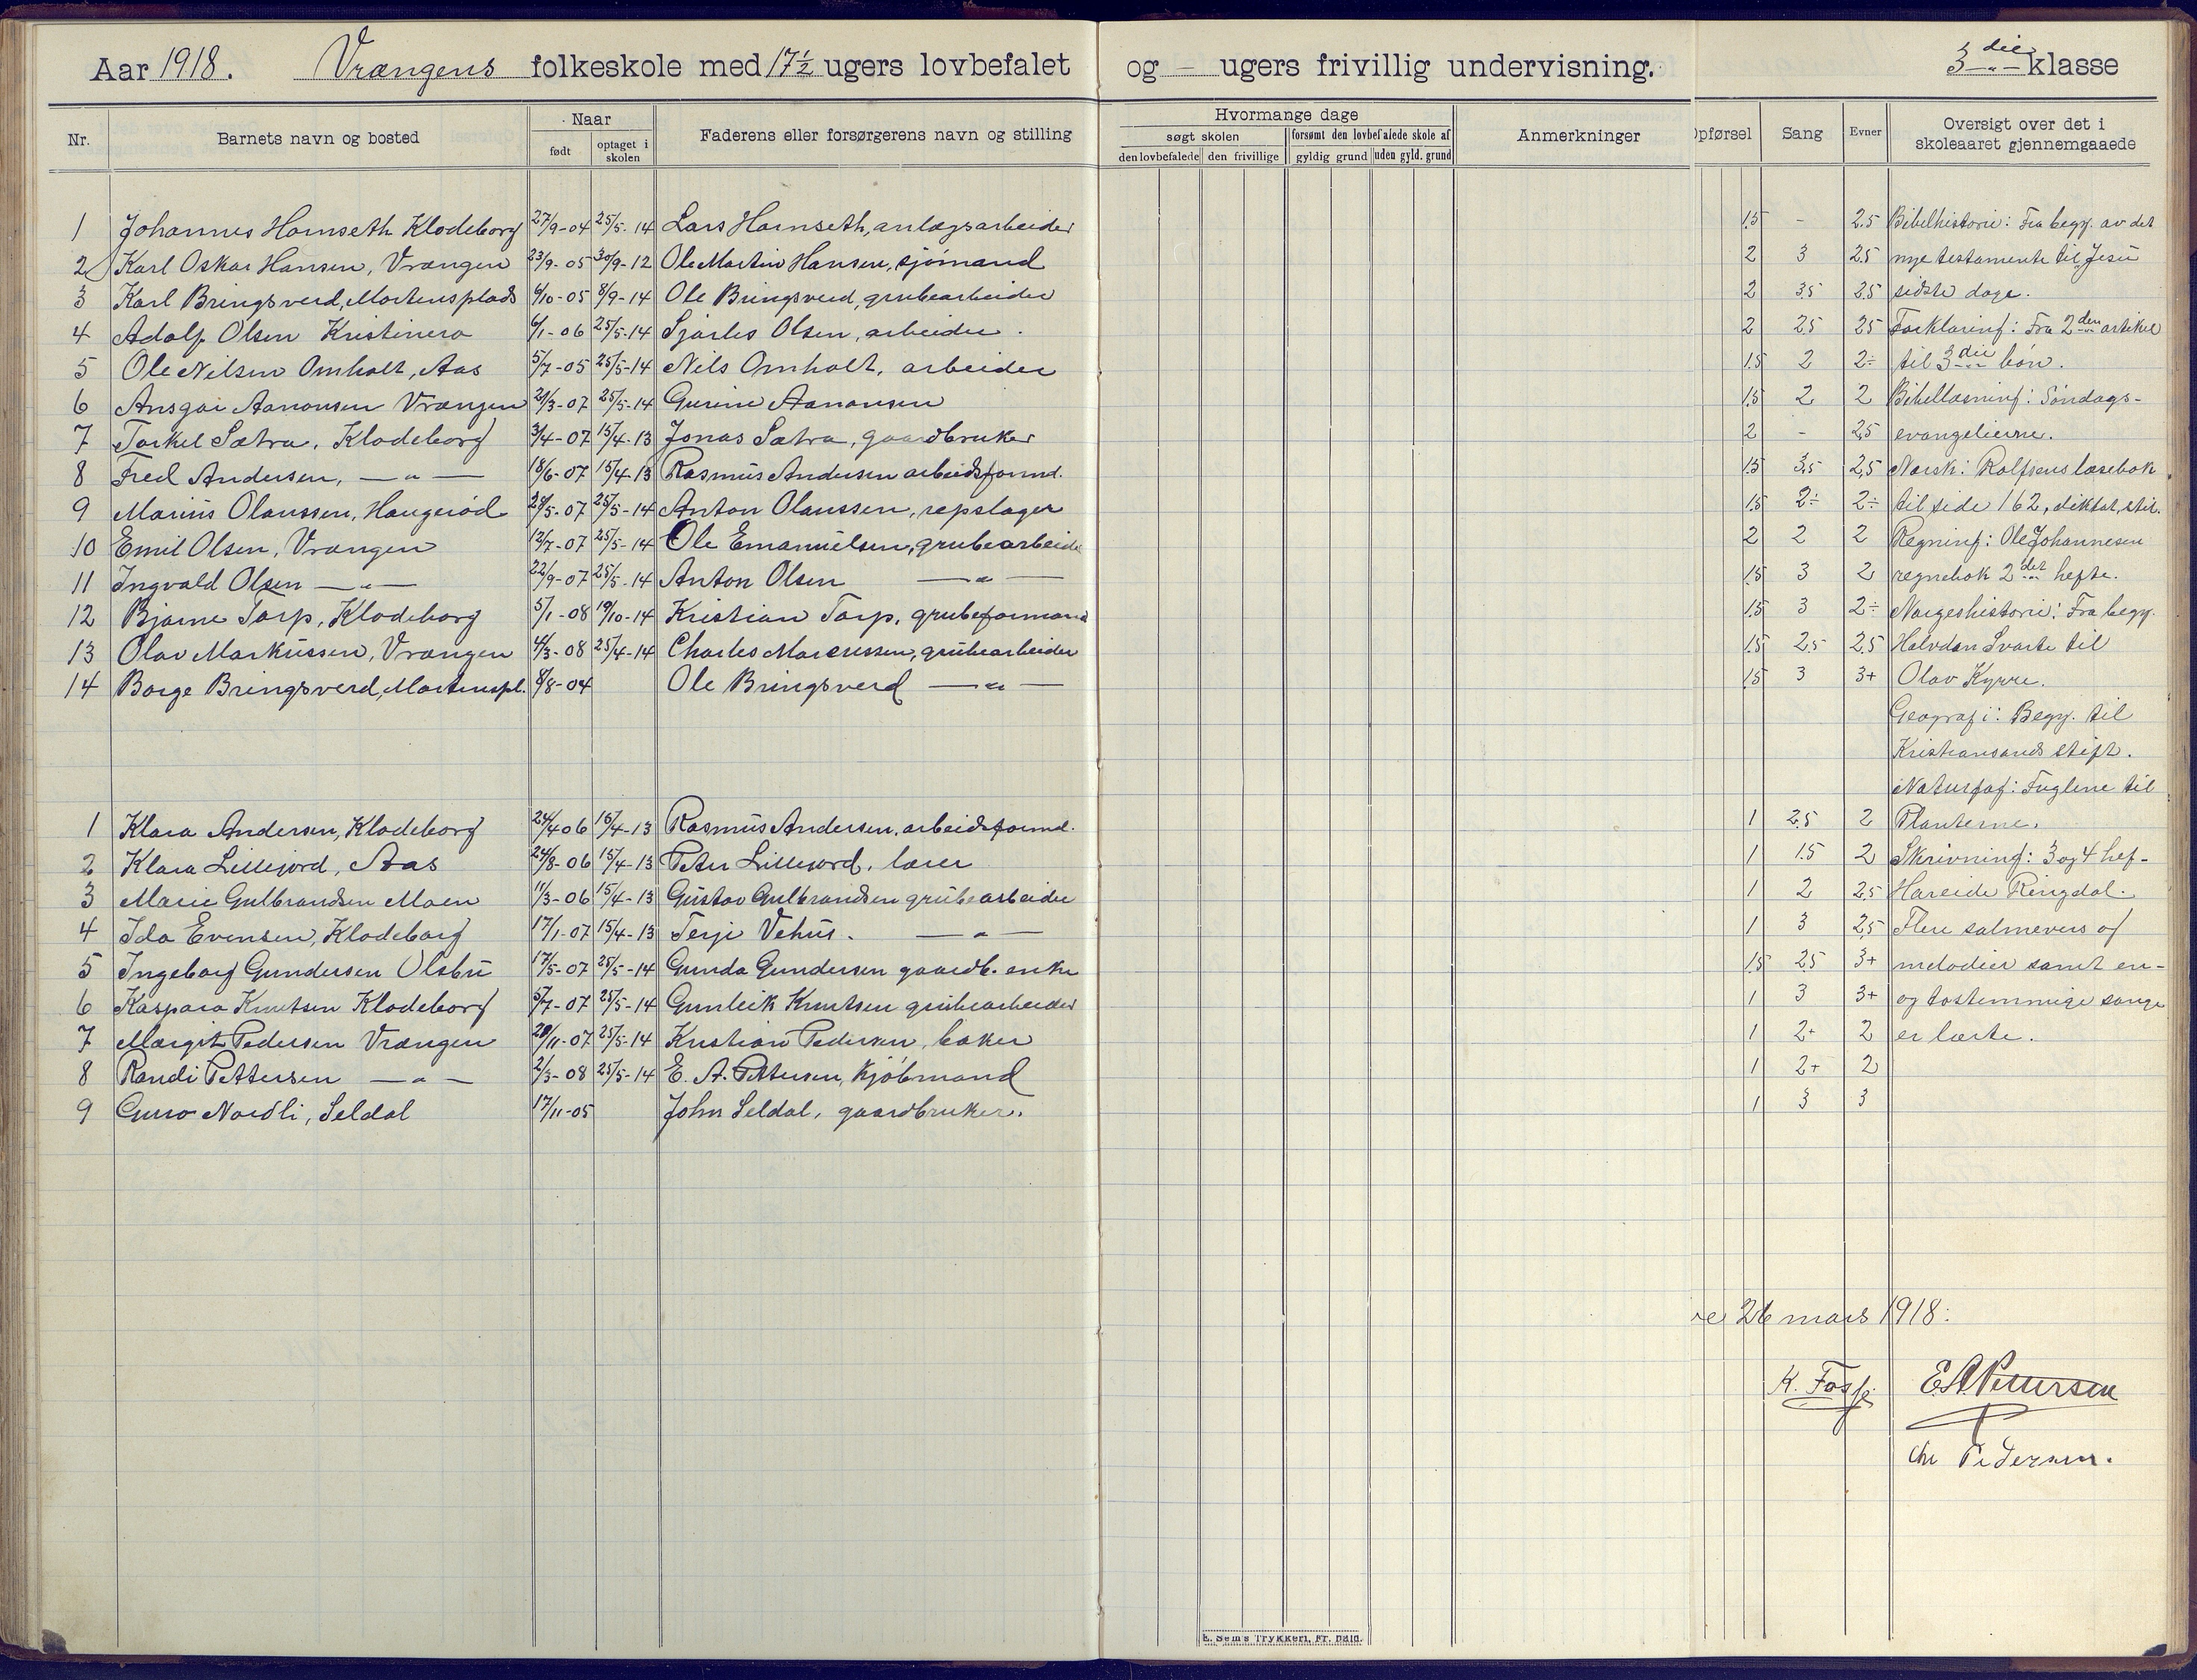 Aar 1918. Vrængens folkeskole med 17½ ugers lovbefalet og – ugers frivillig undervisning. 3die klasse
Nr. Barnets navn og bosted Naar født optaget i skolen Faderens eller forsørgerens navn og stilling
Hvormange dage søgt skolen den lovbefalede den frivillige forsømt den lovbefalede skole af gyldig grund uden gyld. grund Anmerkninger
Opførsel Sang Evner Oversigt over det i skoleaaret gjennemgaaede
1 Johannes Hamseth Klodeborg 27/9-04 25/5-14 Lars Hamseth, anlægsarbeider 1.5 - 2.5 Bibelhistorie: Fra begy. av det
2 Karl Oskar Hansen, Vrængen 23/9-05 30/9-12 Ole Martin Hansen, sjömand 2 3 2.5 nye testamente til Jesu
3 Karl Bringsverd, Mortensplads 6/10-05 8/9-14 Ole Bringsverd, grubearbeider 2 3.5 2.5 sidste dage.
4 Adolf Olsen Kristinero 6/1-06 25/5-14 Sjarles Olsen, arbeider. 2 2.5 2.5 Forklaring: Fra 2den artikel
5 Ole Nilsen Omholt, Aas 5/7-05 25/5-14 Nils Omholt, arbeider 1.5 2 2÷ til 3die bön.
6 Ansgar Aanonsen Vrængen 21/3-07 25/5-14 Gurine Aanonsen 1.5 2 2 Bibellæsning: Söndags-
7 Torkel Sætra, Klodeborg 3/4-07 15/4-13 Jonas Sætra, gaardbruker 2 - 2,5 evangelierne.
8 Fred Andersen, —"— 18/6-07 15/4-13 Rasmus Andersen arbeidsformd. 1.5 3.5 2,5 Norsk: Rolfsens læsebok
9 Marius Olaussen, Haugeröd 28/5-07 25/5-14 Anton Olaussen, repslager 1.5 2÷ 2÷ til side 162, diktat, stil.
10 Emil Olsen, Vrængen 12/7-07 25/5-14 Ole Emanuelsen, grubearbeide 2 2 2 Regning: Ole Johannesen
11 Ingvald Olsen —"— 22/9-07 25/5-14 Anton Olsen —"— 1.5 3 2 regnebok 2det hefte.
12 Bjarne Torp, Klodeborg 5/1-08 19/10-14 Kristian Torp, grubeformand 1.5 3 2÷ Norgeshistorie: Fra begy.
13 Olav Markussen, Vrængen 4/3-08 25/4-14 Charles Marcussen, grubearbeider 1.5 2.5 2.5 Halvdan Svarte til
14 Borge Bringsverd, Mortenspl. 8/8-04 Ole Bringsverd —"— 1.5 3 3+ Olav Kyrre.
Geografi: Begy. til
Kristiansands stift.
Naturfag: Fuglene til
1 Klara Andersen, Klodeborg 24/4 06 15/4-13 Rasmus Andersen, arbeidsformd. 1 2.5 2 Planterne.
2 Klara Lillejord, Aas 24/8-06 15/4-13 Peter Lillejord, lærer 1 1.5 2 Skrivning: 3 og 4 hef-
3 Marie Gulbrandsen Moen 11/3-06 15/4-13 Gustav Gulbrandsen grubearbeider 1 2 2.5 Hareide Ringdal.
4 Ida Evensen, Klodeborg 17/1-07 15/4-13 Terje Vehus. —"— 1 3 2,5 Flere salmevers og
5 Ingeborg Gundersen Olsbu 17/5-07 25/5-14 Gunda Gundersen gaardb. enke 1.5 2.5 3+ melodier samt en-
6 Kaspara Knutsen Klodeborg 5/7-07 25/5-14 Gunleik Knutsen grubearbeider 1 3 3+ og tostemmige sange
7 Margit Pedersen Vrængen 20/11-07 25/5-14 Kristian Pedersen, baker 1 2+ 2 er lærte.
8 Randi Pettersen —"— 2/3-08 25/5-14 E. A. Pettersen, kjöbmand 1 2+ 2
9 Guro Nordli, Seldal 17/11-05 John Seldal, gaardbruker. 1 3 3
26 mars 1918:
K. Fosse. E.A. Pettersen
Chr Pedersen.
E. Sem's Trykkeri, Fr. hald.